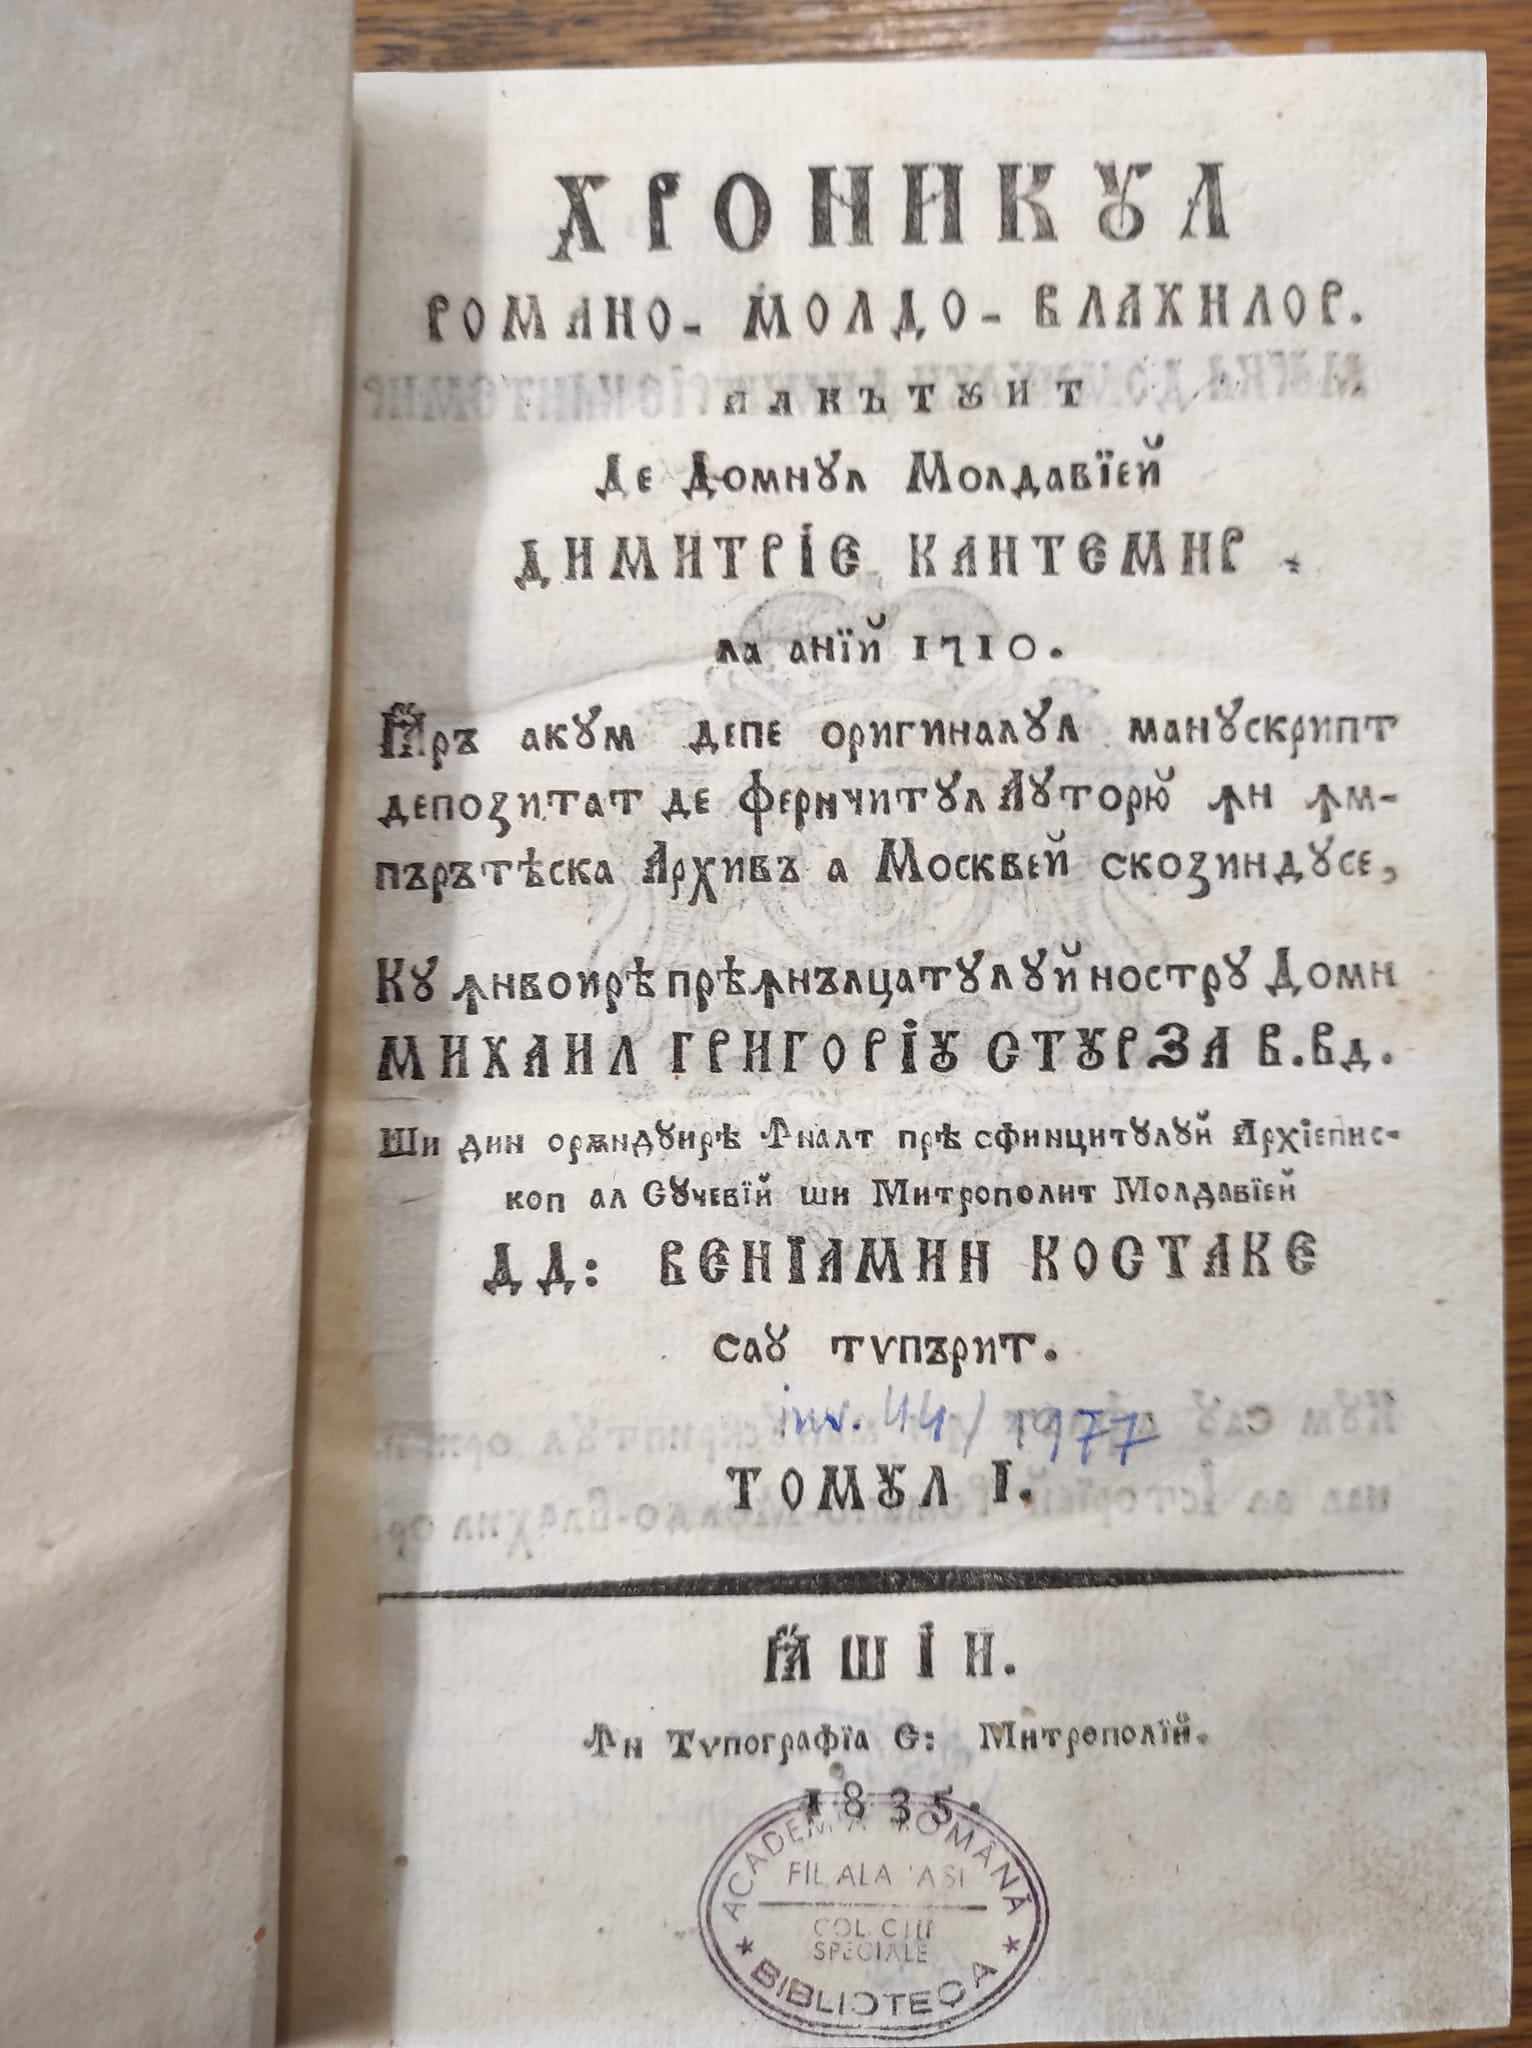 ХРОНИКꙊЛ
РОМАНО- МОЛДО- ВЛАХИЛОР.
АЛКЪТꙊИТ
Де Домнꙋл Молдавїей
ДИМИТРІЕ КАНТЕМИР.
ла анїй 1710.
Ꙗръ акꙋм депе оригиналꙋл манꙋскрипт
депозитат де феричитꙋл Аꙋторю̆ ꙟн ꙟм-
пърътѣска Архивъ а Москвей скозиндꙋсе,
Кꙋ ꙟнвоирѣ прѣꙟнълцатꙋлꙋй нострꙋ Домн
МИХАИЛ ГРИГОРІꙊ СТꙊРЗА В.Вд.
Ши дин орѫндꙋирѣ Ꙟналт прѣ сфинцитꙋлꙋй Архіепис-
коп ал Сꙋчевїй ши Митрополит Молдавїей
ДД: ВЕНІАМИН КОСТАКЕ
саꙋ тѵпърит.
inv. 44/1977
ТОМꙊЛ I.
ꙖШІИ.
Ꙟн Тѵпографїа С: Митрополїй.
1835.
ACADEMIA ROMÂNĂ
FILIALA IAȘI
COLECȚII
SPECIALE
* BIBLIOTECA *